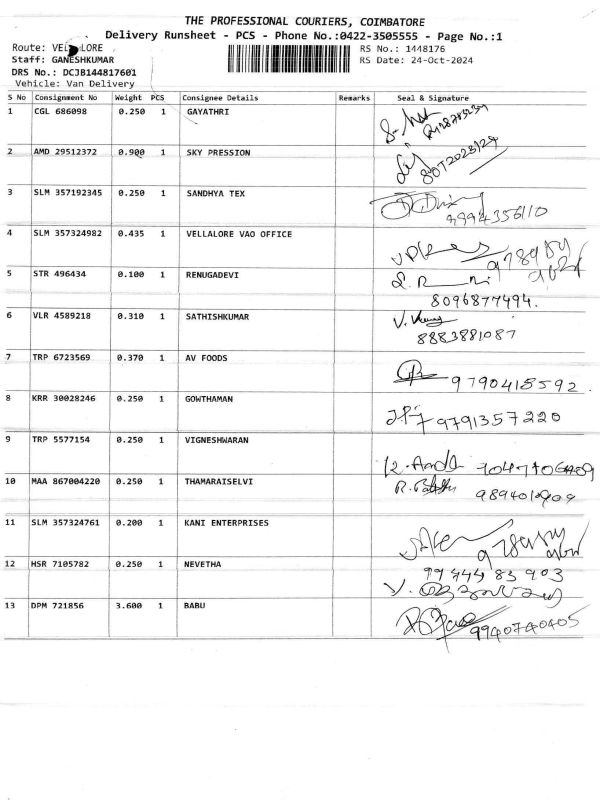 THE PROFESSIONAL COURIERS, COIMBATORE
Delivery Runsheet - PCS - Phone No.:0422-3505555 - Page No.:1
Route: VELLALORE
RS No.: 1448176
Staff: GANESHKUMAR
RS Date: 24-Oct-2024
DRS No.: DCJB144817601
Vehicle: Van Delivery
S No Consignment No Weight PCS Consignee Details Remarks Seal & Signature
1 CGL 686098 0.250 1 GAYATHRI
2 AMD 29512372 0.900 1 SKY PRESSION
3 SLM 357192345 0.250 1 SANDHYA TEX
9994356110
4 SLM 357324982 0.435 1 VELLALORE VAO OFFICE
5 STR 496434 0.100 1 RENUGADEVI
8096877494.
6 VLR 4589218 0.310 1 SATHISHKUMAR
8883881087
7 TRP 6723569 0.370 1 AV FOODS
9790418592
8 KRR 30028246 0.250 1 GOWTHAMAN
9791357220
9 TRP 5577154 0.250 1 VIGNESHWARAN
10 MAA 867004220 0.250 1 THAMARAISELVI
11 SLM 357324761 0.200 1 KANI ENTERPRISES
12 HSR 7105782 0.250 1 NEVETHA
99444 83 903
13 DPM 721856 3.600 1 BABU
9940740405